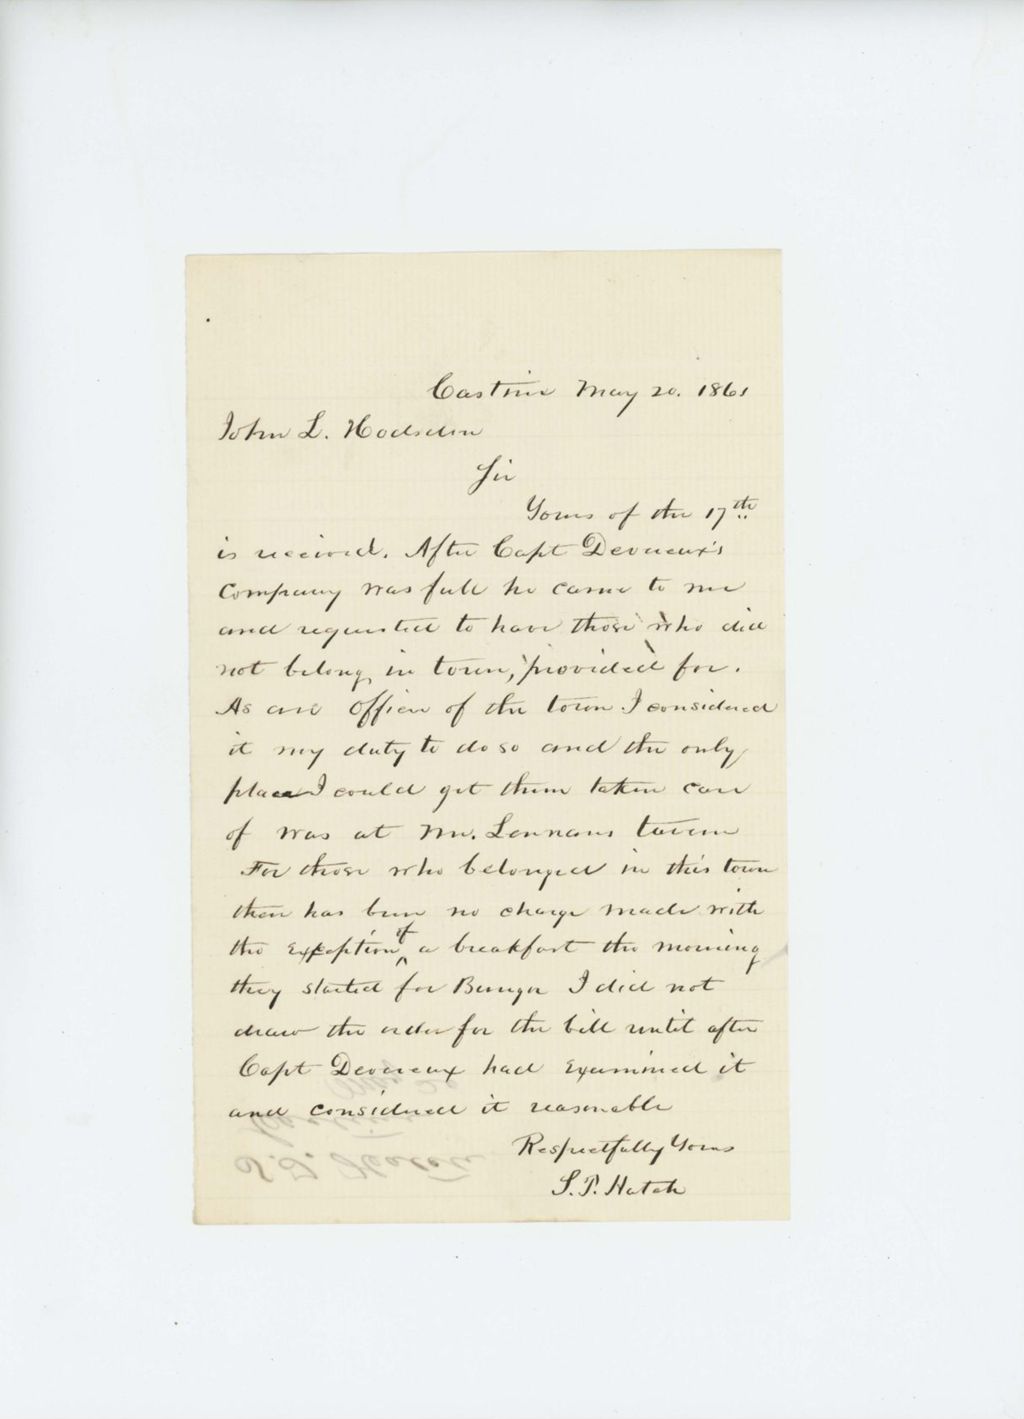 Castine May 20. 1861
John L. Hodsdon
Sir
Yours of the 17th
is received. After Capt Devereux's
Company was full he came to me
and requested to have those who did
not belong in town, provided for.
As an officer of the town I considered
it my duty to do so and the only
place I could get them taken care
of was at Mr. Lennans tavern
For those who belonged in this town
there has been no charge made with
the exception of a breakfast the morning
they started for Bangor I did not
draw the order for the bill until after
Capt Devereux had examined it
and considered it reasonable
Respectfully Yours
S. T. Hatch